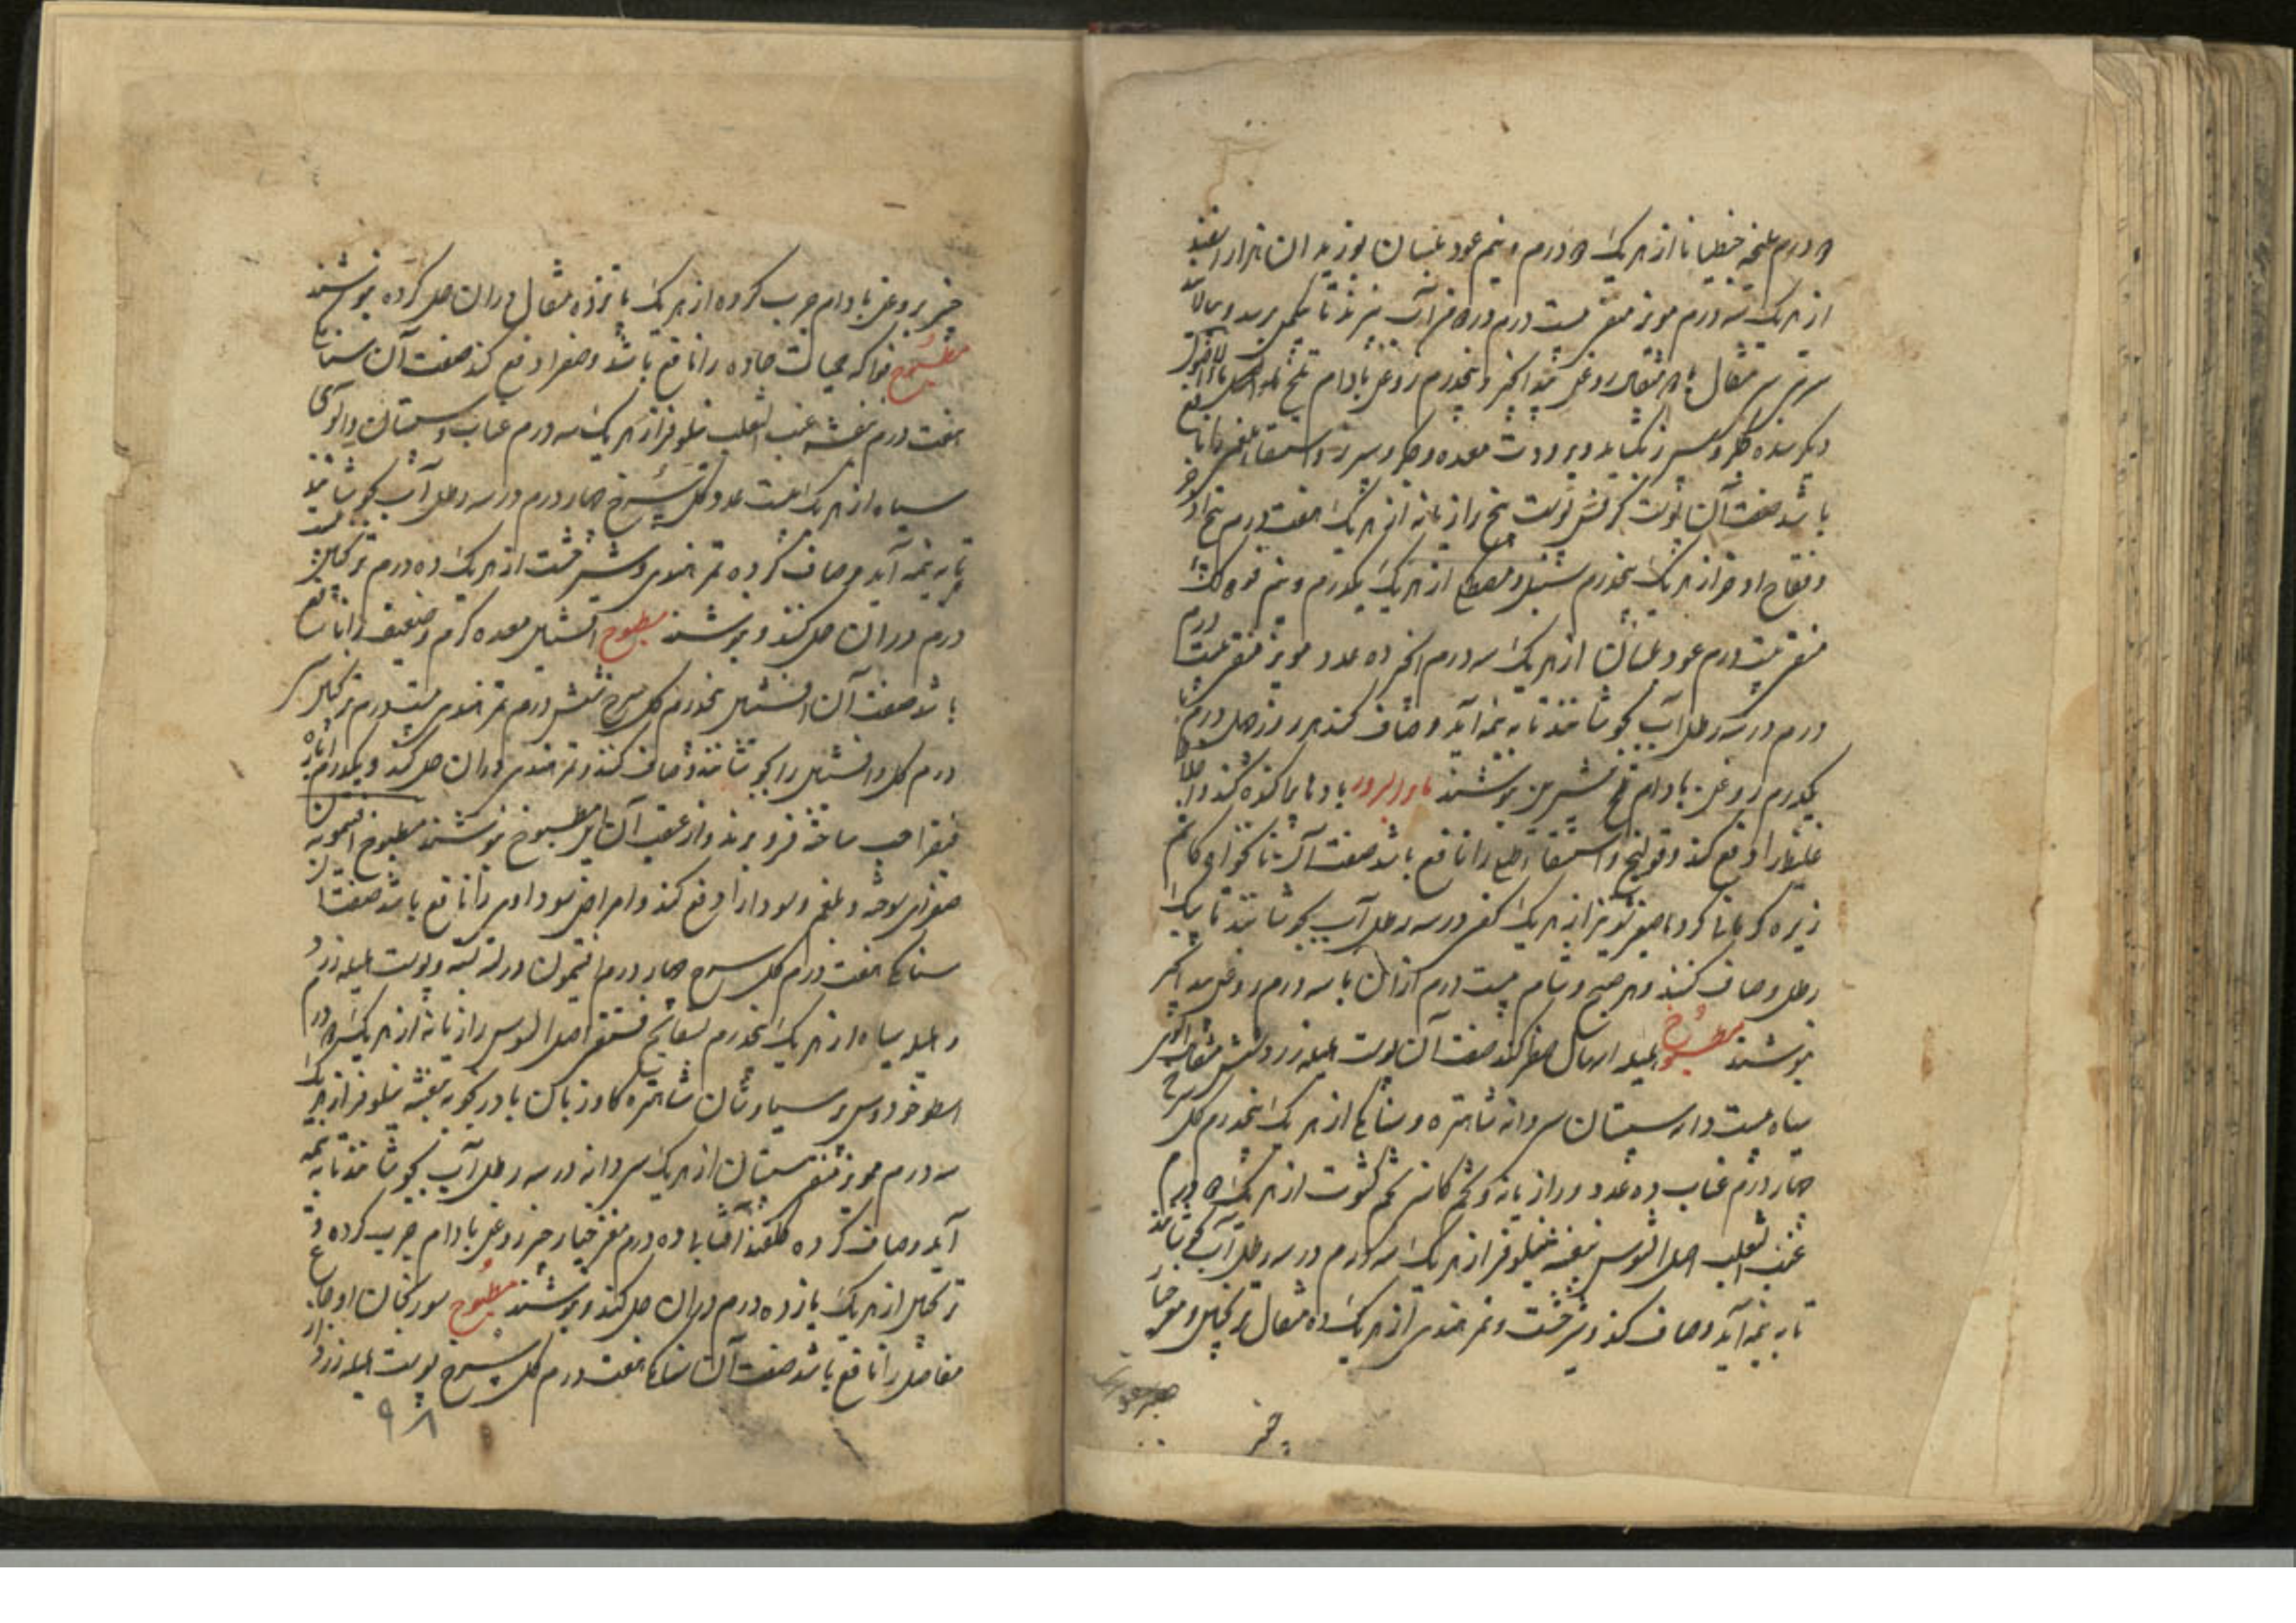 درم جنطیانا از هریک درم و نیم عود بلسان بوزیدان هزار اسفند
از هریک سه درم مویز منقی بیست درم در من آب بپزند تا بیک من رسد و بپالایند
مثقال با مثقال روغن بید انجیر و نیم درم روغن بادام تلخ
دیگر سده جگر و سپرز بگشاید و برودت معده و جگر و سپرز و استسقاء لحمی را نافع
باشد صفت آن پوست کرفس پوست بیخ رازیانه از هریک هفت درم بیخ اذخر
و فقاح اذخر از هریک پنجدرم سنبل و مصطکی از هریک یکدرم و نیم فوه لک
منقی بیست درم عود بلسان از هریک سه درم انجیر ده عدد مویز منقی بیست
درم در سه رطل آب بجوشانند تا به نیمه آید و صاف کنند هر روز چهل درم با
یکدرم روغن بادام تلخ شیرین بنوشند ماء البزور بادها پراکنده کند و اخلاط
غلیظ را دفع کند و قولنج و استسقاء طبلی را نافع باشد صفت آن نانخواه کاشم
زیره کرمانی کرویا صعتر شونیز از هریک کفی در سه رطل آب بجوشانند تا بیک
رطل و صاف کنند و هر صبح و شام بیست درم از آن با سه درم روغن بید انجیر
بنوشند مطبوخ هلیله اسهال صفرا کند صفت آن پوست هلیله زرد شش مثقال آلوی
سیاه بیست دانه سپستان سی دانه شاهتره و سنا مکی از هریک پنجدرم گل سرخ
چهار درم عناب ده عدد و رازیانه و تخم کاسنی تخم کشوت از هریک درم
عنب الثعلب اصل السوس بنفشه نیلوفر از هریک سه درم در سه رطل آب بجوشانند
تا به نیمه آید و صاف کنند و شیرخشت و تمر هندی از هریک ده مثقال ترنجبین و مغز خیار
چنبر
چنبر بروغن بادام چرب کرده از هریک پانزده مثقال در آن حل کرده بنوشند
مطبوخ فواکه حمیات حاده را نافع باشد و صفرا دفع کند صفت آن سنا مکی
هفت درم بنفشه عنب الثعلب نیلوفر از هریک سه درم عناب و سپستان و آلوی
سیاه از هریک بیست عدد گل سرخ چهار درم در سه رطل آب بجوشانند
تا به نیمه آید و صاف کرده تمر هندی و شیرخشت از هریک ده درم ترنجبین بیست
درم در آن حل کنند و بنوشند مطبوخ افسنتین معده گرم و ضعیف را نافع
باشد صفت آن افسنتین پنجدرم گل سرخ شش درم تمر هندی بیست درم ترنجبین سی
درم گل و افسنتین را بجوشانند و صاف کنند و تمر هندی در آن حل کنند و یکدرم ایاره
فیقرا حب ساخته فرو برند و از عقب آن این مطبوخ بنوشند مطبوخ افتیمون
صفرای سوخته و بلغم و سودا را دفع کند و امراض سوداوی را نافع باشد صفت آن
سنا مکی هفت درم گل سرخ چهار درم افتیمون در لته بسته و پوست هلیله زرد
و هلیله سیاه از هریک پنجدرم بسفایج فستقی اصل السوس رازیانه از هریک درم
اسطوخودوس پرسیاوشان شاهتره گاوزبان بادرنجبویه بنفشه نیلوفر از هریک
سه درم مویز منقی سپستان از هریک سی دانه در سه رطل آب بجوشانند تا به نیمه
آید و صاف کرده گلقند آفتابی ده درم مغز خیار چنبر بروغن بادام چرب کرده و
ترنجبین از هریک پانزده درم در آن حل کنند و بنوشند مطبوخ سورنجان اوجاع
مفاصل را نافع باشد صفت آن سنا مکی هفت درم گل سرخ پوست هلیله زرد از
۹۸